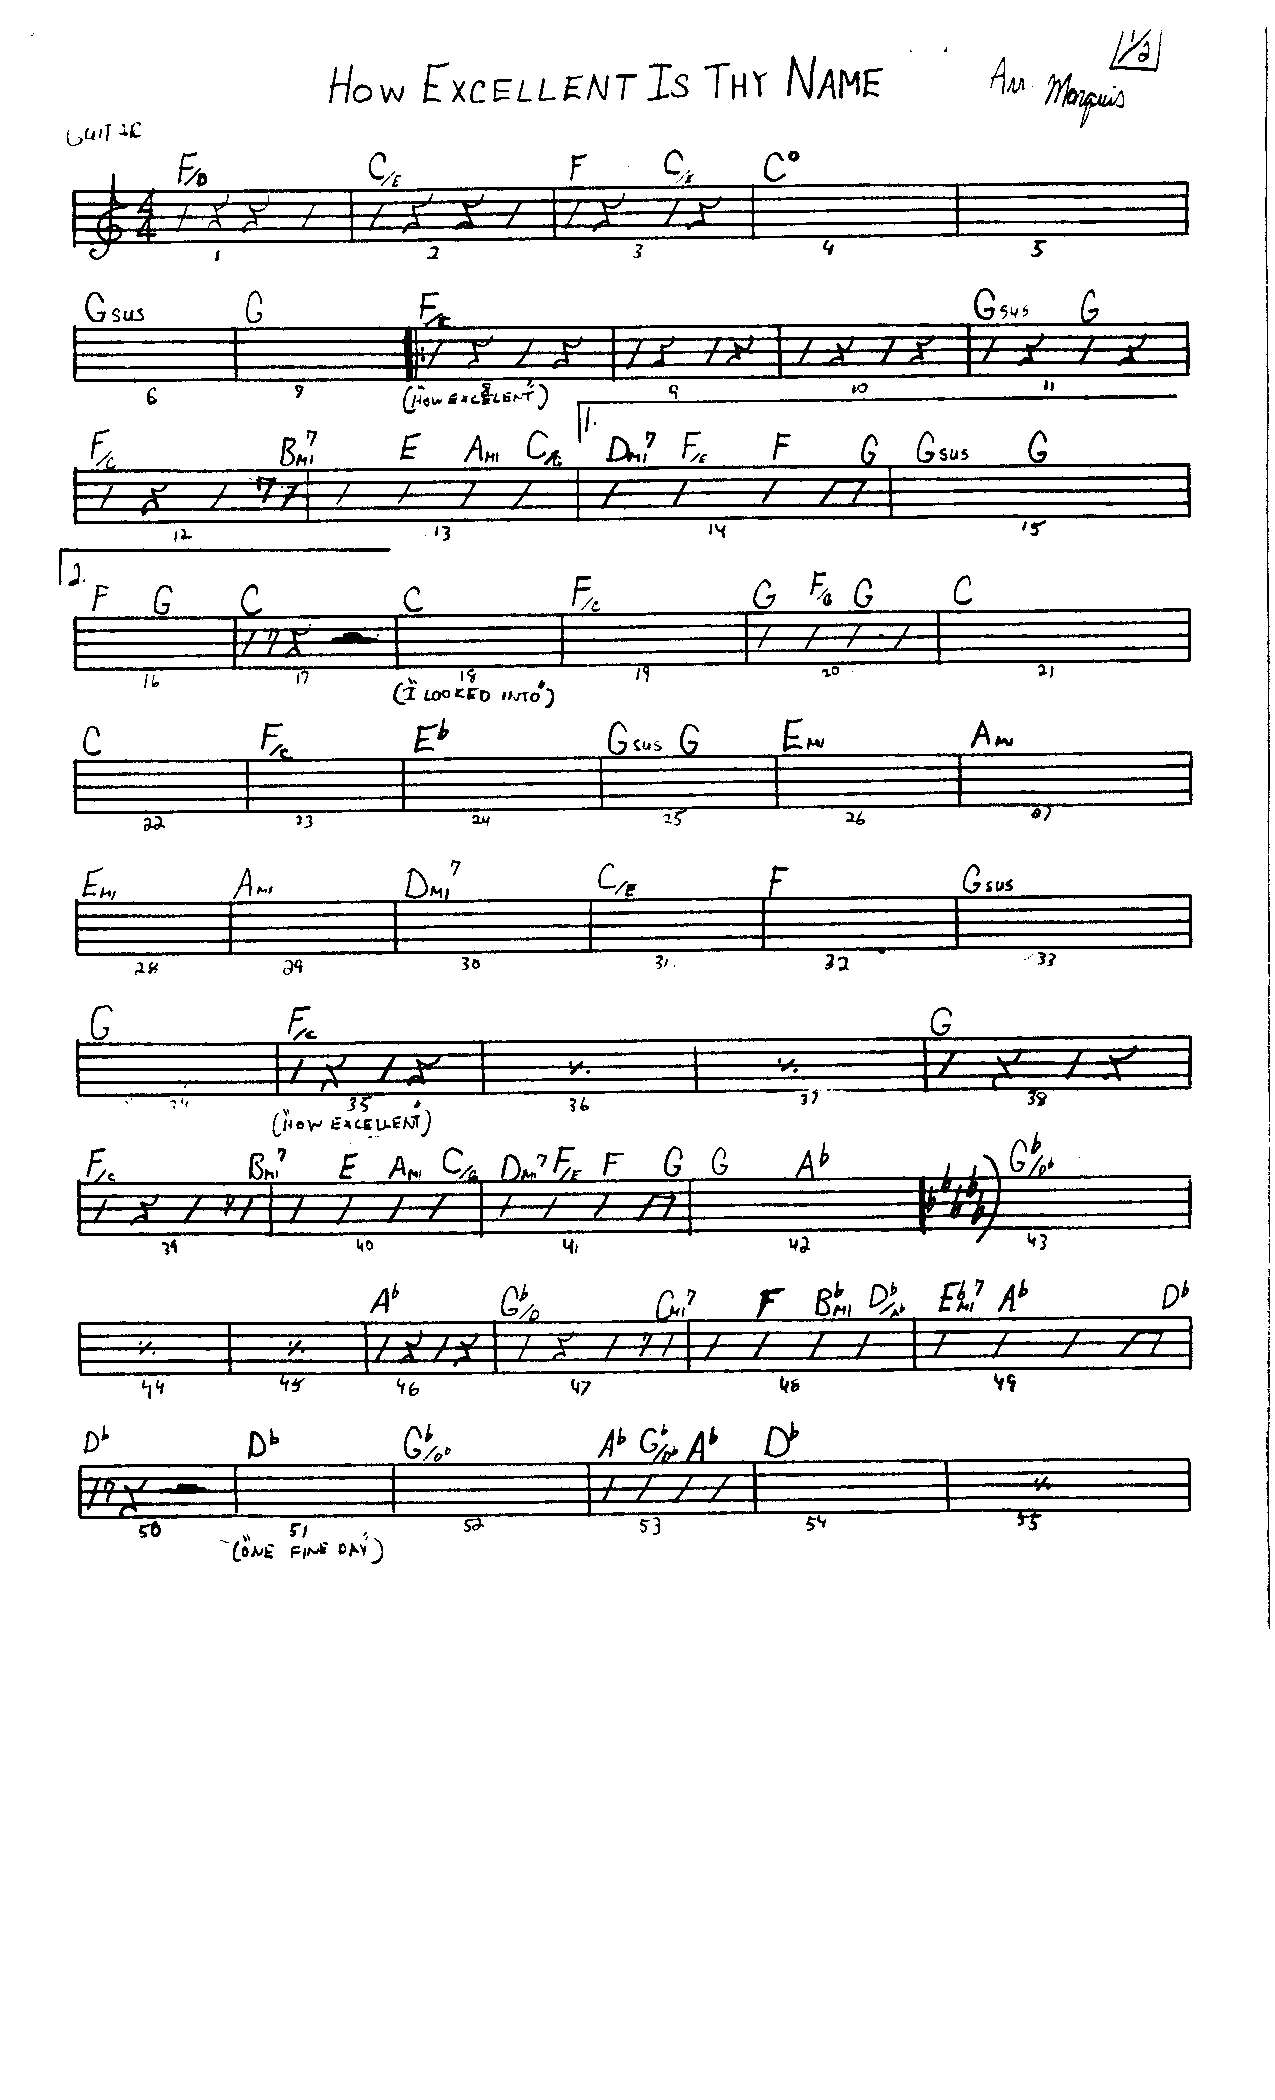 1/2
HOW EXCELLENT IS THY NAME Arr. Marquis
GUITAR
F/D C/E F C/E C°
4/4
1 2 3 4 5
Gsus G F/C Gsus G
6 8 9 10 11
("HOW EXCELLENT")
1.
F/C BMI7 E AMI C/G DMI7 F/E F G Gsus G
12 13 14 15
2.
F G C C F/C G F/G G C
16 17 18 19 20 21
("I LOOKED INTO")
C F/C E♭ Gsus G EMI AMI
22 23 24 25 26 27
EMI AMI DMI7 C/E F Gsus
28 29 30 31 32 33
G F/C G
34 35 36 37 38
("HOW EXCELLENT")
F/C BMI7 E AMI C/G DMI7 F/E F G G A♭ G♭/D♭
39 40 41 42 43
A♭ G♭/D CMI7 F B♭MI D♭/A♭ E♭MI7 A♭ D♭
44 45 46 47 48 49
D♭ D♭ G♭/D♭ A♭ G♭/D♭ A♭ D♭
50 51 52 53 54 55
("ONE FINE DAY")